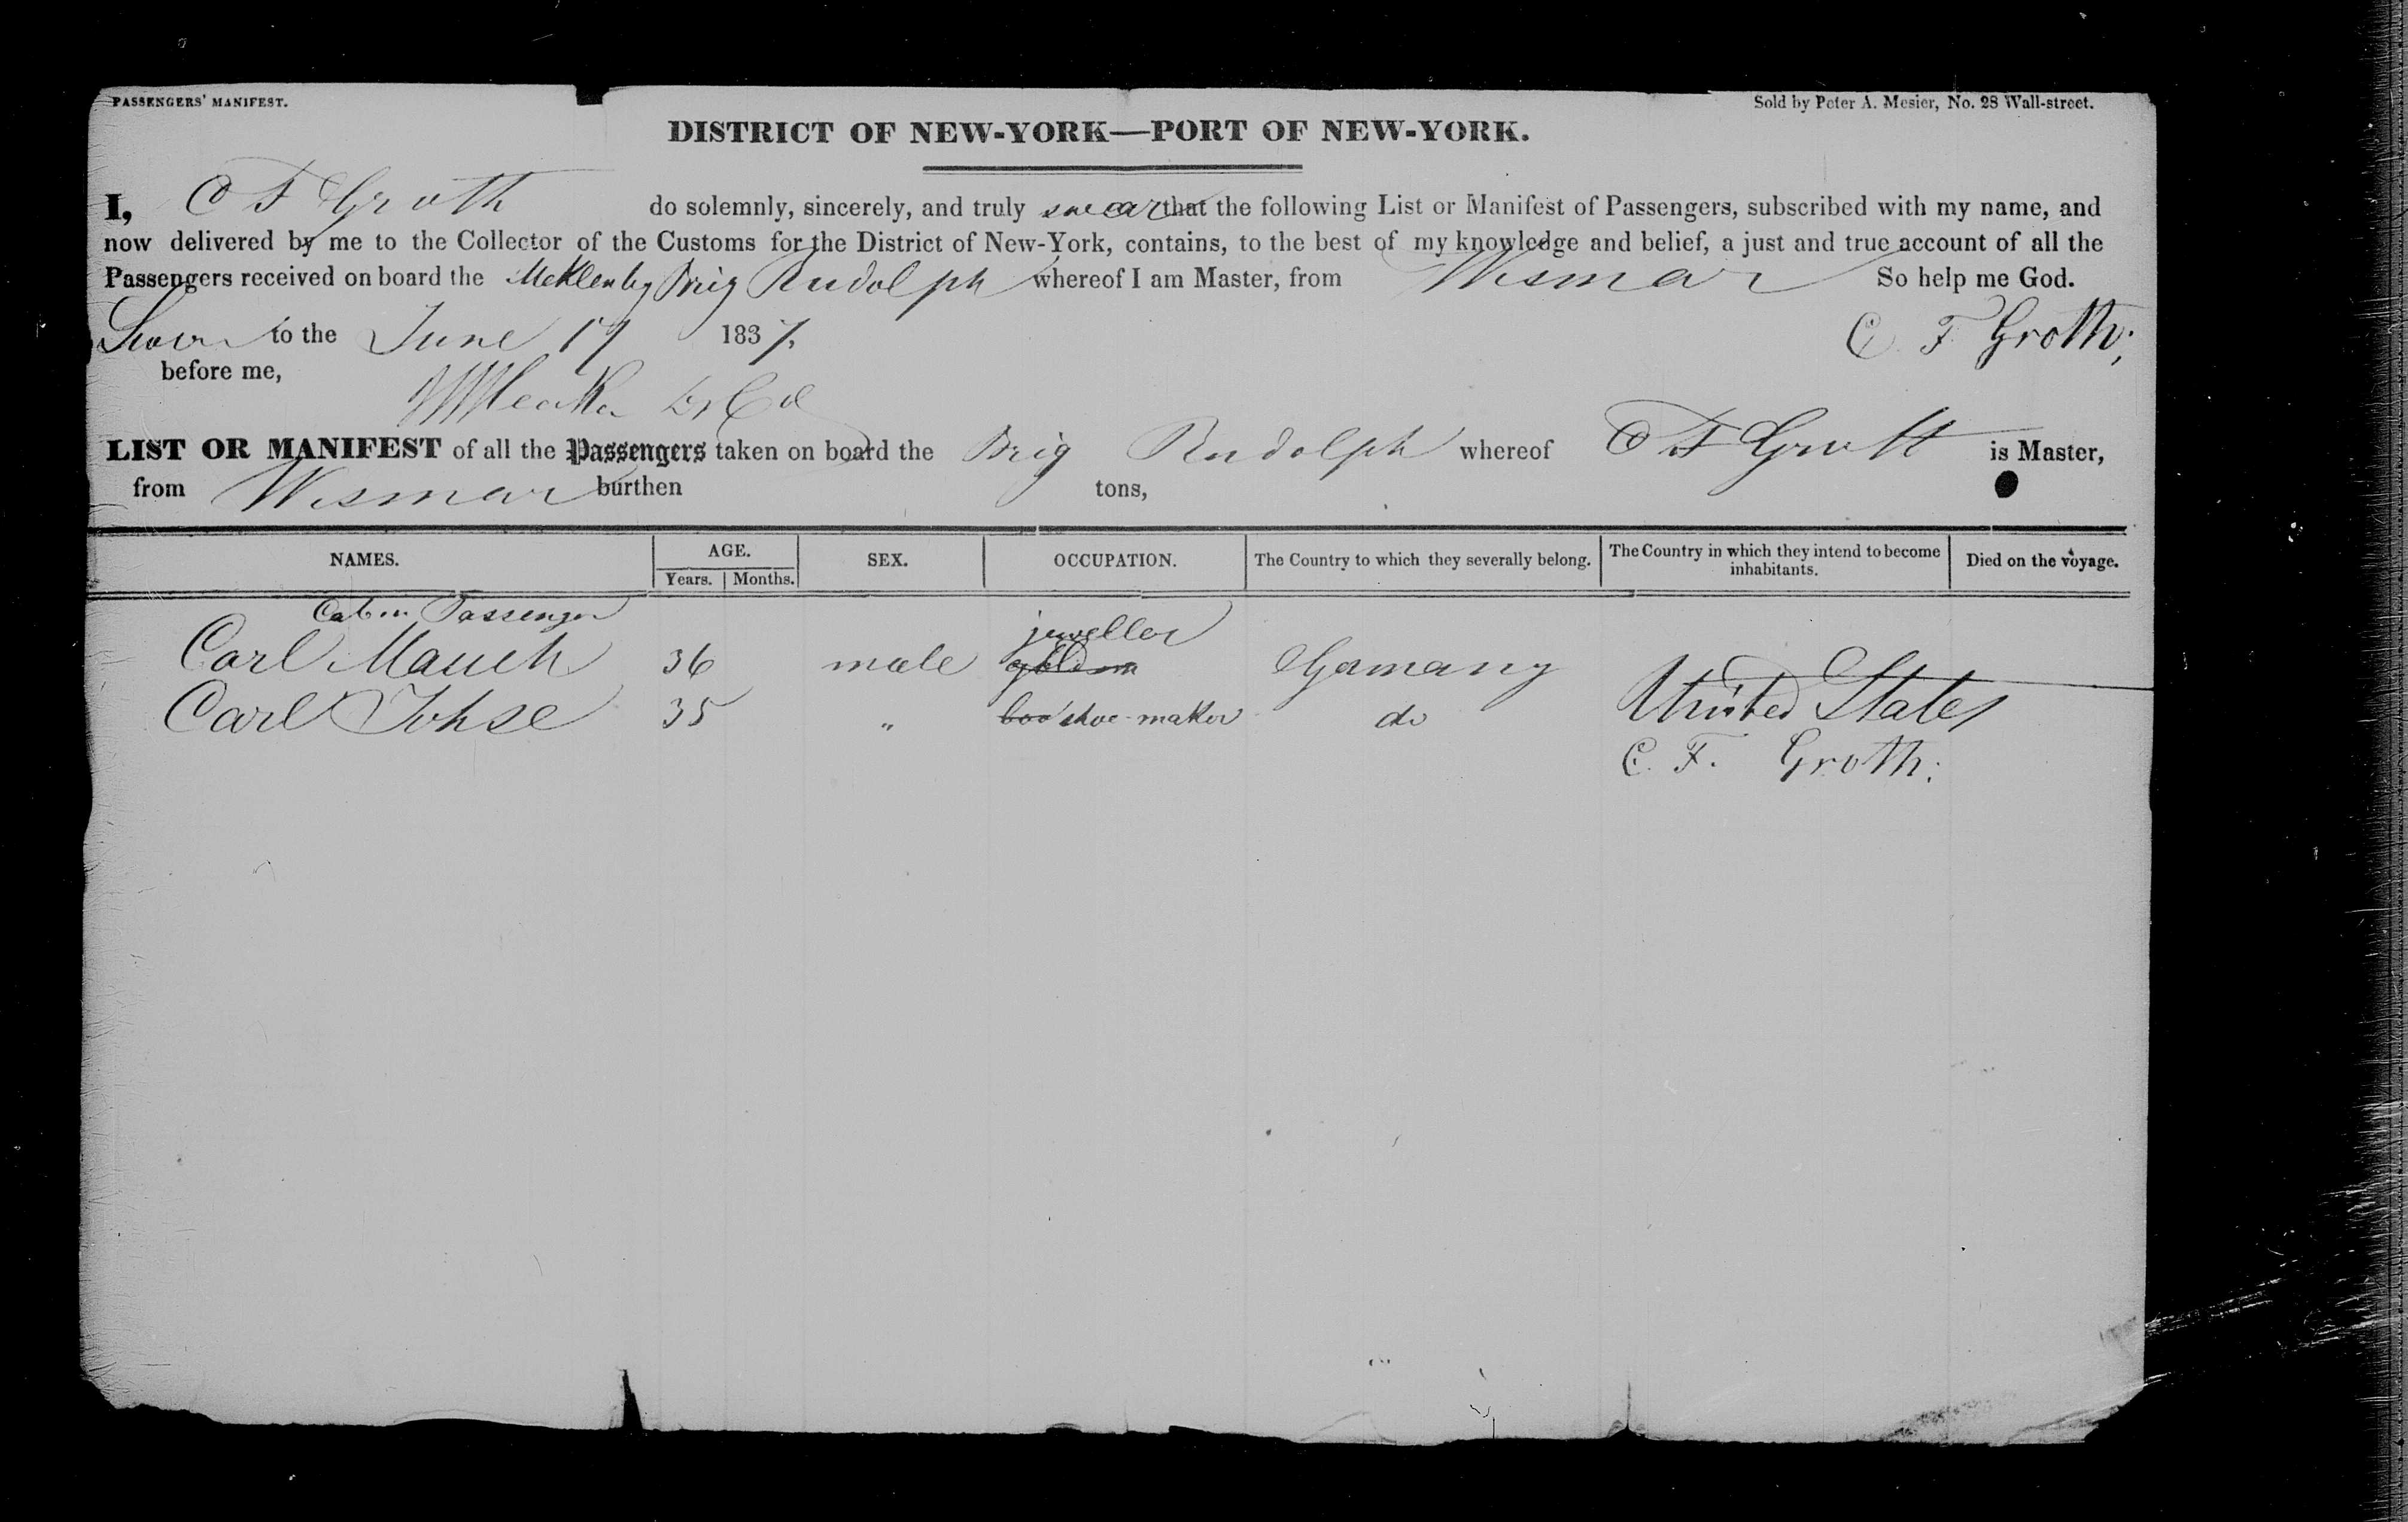 PASSENGERS' MANIFEST.
Sold by Peter A. Mesier, No. 28 Wall-street.
DISTRICT OF NEW-YORK—PORT OF NEW-YORK.
I, C F Groth do solemnly, sincerely, and truly swear that the following List or Manifest of Passengers, subscribed with my name, and
now delivered by me to the Collector of the Customs for the District of New-York, contains, to the best of my knowledge and belief, a just and true account of all the
Passengers received on board the Meklenbg Brig Rudolph whereof I am Master, from Wismar So help me God.
Sworn to the June 17 1837. C. F Groth;
before me,
LIST OR MANIFEST of all the Passengers taken on board the Brig Rudolph whereof C F Groth is Master,
from Wismar burthen tons,
NAMES. AGE. Years. Months. SEX. OCCUPATION. The Country to which they severally belong. The Country in which they intend to become inhabitants. Died on the voyage.
Cabin Passenger
jeweller
Carl Mauch 36 male Germany
Carl Tohse 35 " boo shoe-maker do United States
C. F. Groth;